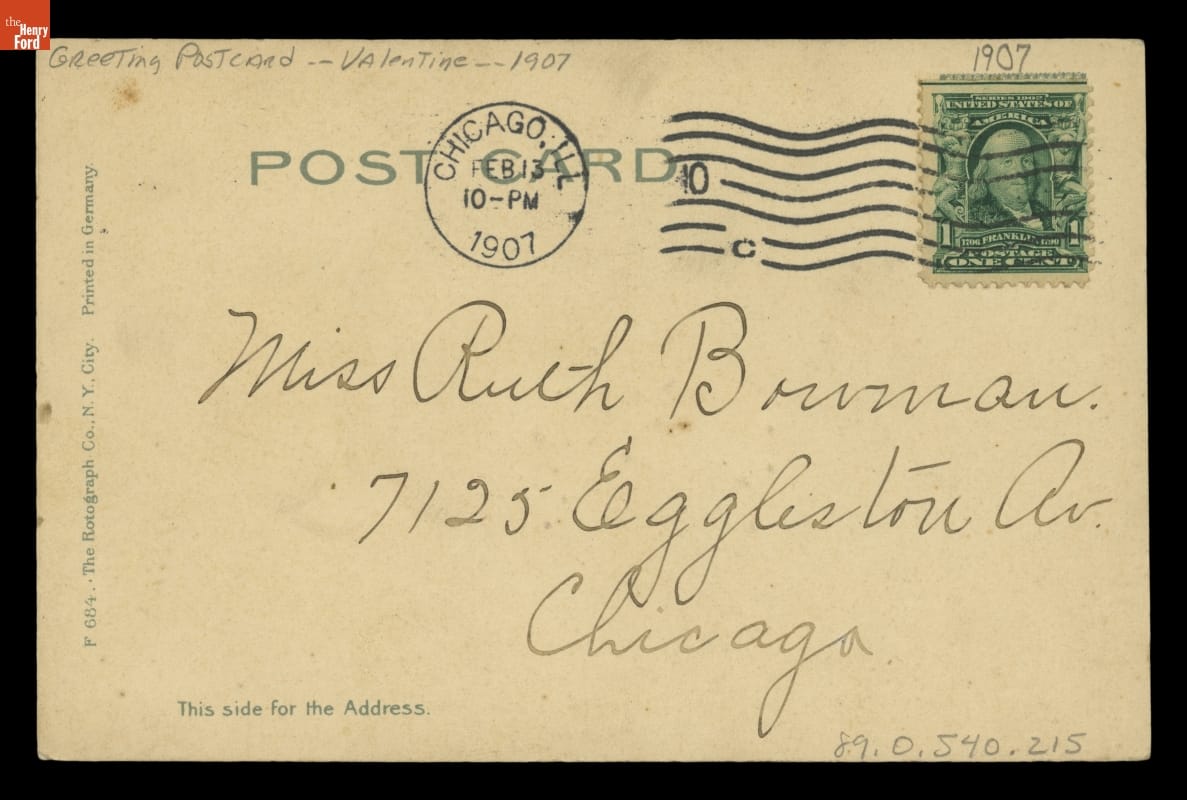 the Henry Ford
Greeting Postcard -- Valentine -- 1907
1907
POST CARD
CHICAGO, ILL
FEB 13
10-PM
1907
10
C
SERIES 1902
UNITED STATES OF
AMERICA
1 1706 FRANKLIN 1790 1
POSTAGE
ONE CENT
Miss Ruth Bowman.
7125 Eggleston Av.
Chicago
F 684. . The Rotograph Co., N. Y., City. Printed in Germany
This side for the Address.
89.0.540.215